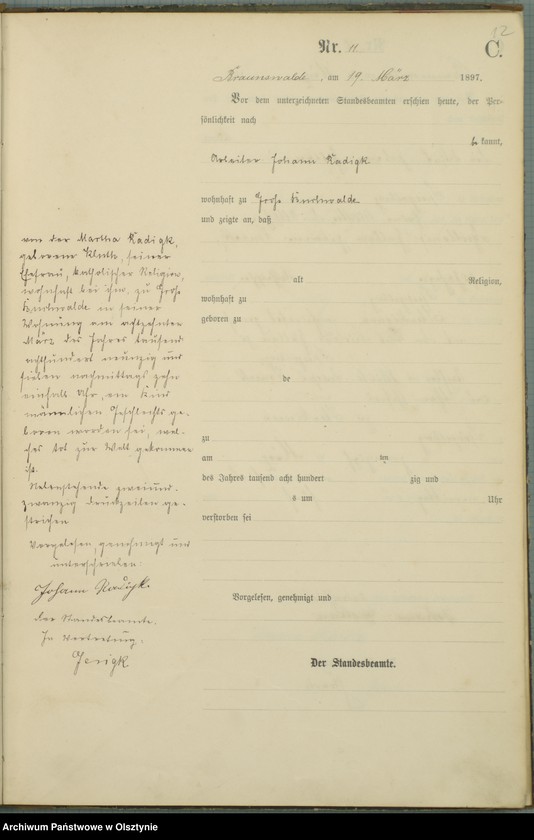 12
Nr. 11
C.
Braunswalde, am 19. März 1897.
Vor dem unterzeichneten Standesbeamten erschien heute, der Per-
sönlichkeit nach
be kannt,
Arbeiter Johann Kadigk
wohnhaft zu Groß Buchwalde
und zeigte an, daß
von der Martha Kadigk,
geborene Kluth, seiner
Ehefrau, katholischer Religion,
wohnhaft bei ihm, zu Groß
Buchwalde in seiner
Wohnung am achtzehnten
März des Jahres tausend
achthundert neunzig und
sieben nachmittags zehn
einhalb Uhr, ein Kind
männlichen Geschlechts ge-
boren worden sei, wel-
ches tot zur Welt gekommen
ist.
Nebenstehende zweiund-
zwanzig Druckzeilen ge-
strichen
Vorgelesen, genehmigt und
unterschrieben:
Johann Kadigk.
Der Standesbeamte.
In Vertretung.
Jerigk
alt Religion,
wohnhaft zu
geboren zu
de
zu
am ten
des Jahres tausend acht hundert zig und
s um Uhr
verstorben sei
Vorgelesen, genehmigt und
Der Standesbeamte.
Archiwum Państwowe w Olsztynie